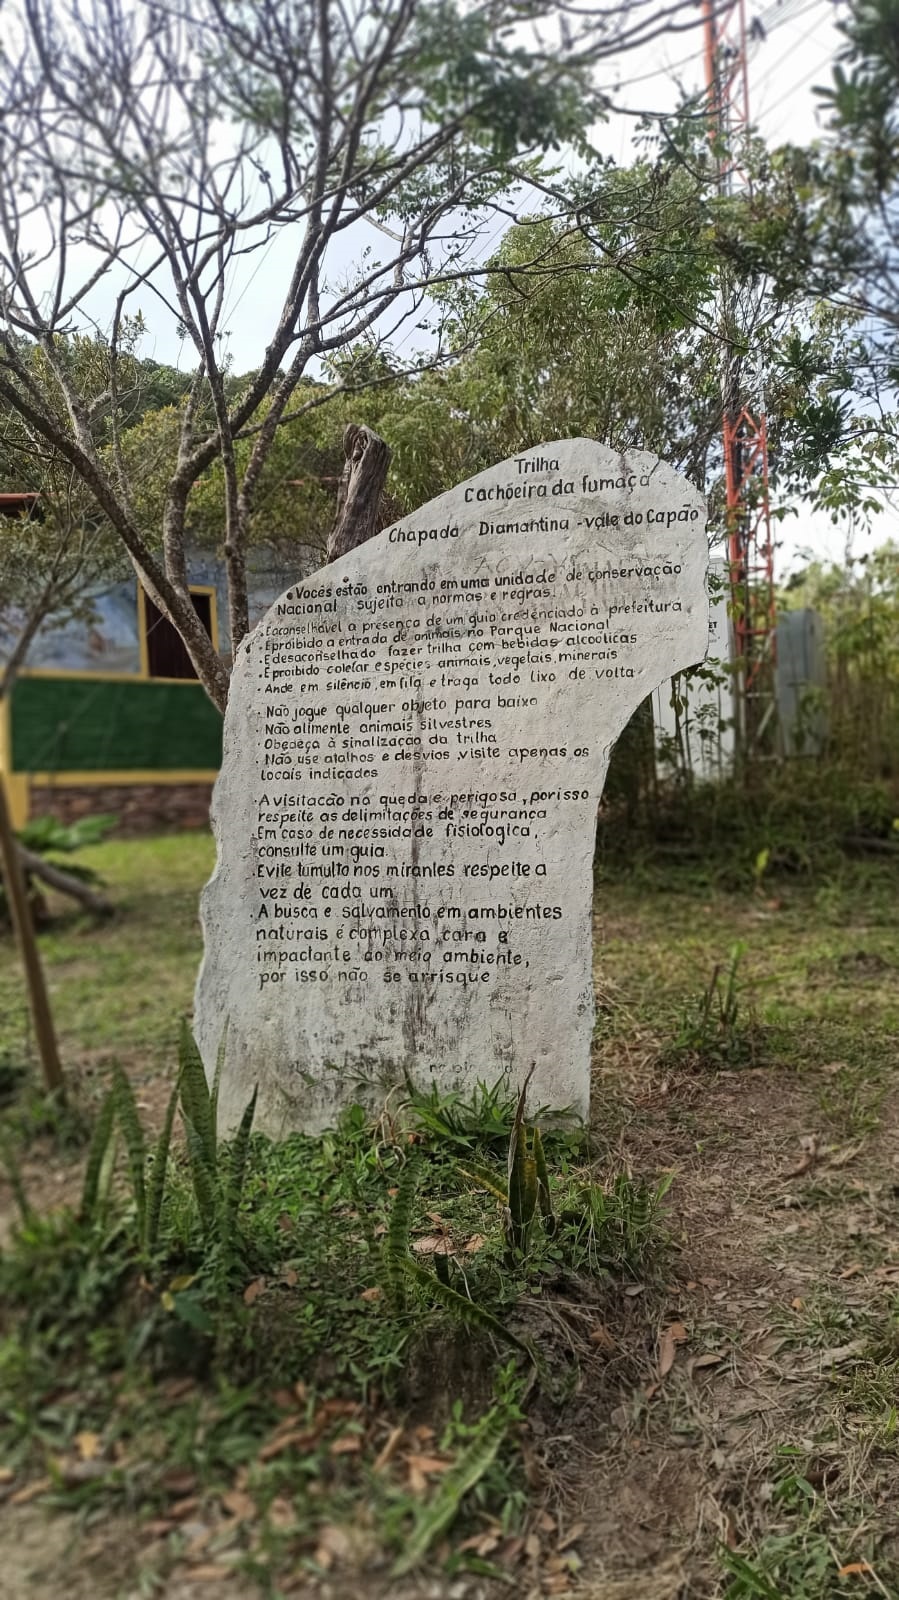 Trilha
Cachoeira da fumaça
Chapada Diamantina - vale do Capão
• Vocês estão entrando em uma unidade de conservação
Nacional sujeita a normas e regras.
• E aconselhável a presença de um guia credenciado à prefeitura
• E proibido a entrada de animais no Parque Nacional
• E desaconselhado fazer trilha com bebidas alcoólicas
• E proibido coletar espécies animais, vegetais, minerais
• Ande em silêncio, em fila e traga todo lixo de volta
• Não jogue qualquer objeto para baixo
• Não alimente animais silvestres
Obedeça à sinalização da trilha
• Não use atalhos e desvios, visite apenas os
locais indicados
• A visitação na queda é perigosa, por isso
respeite as delimitações de segurança
• Em caso de necessidade fisiologica,
consulte um guia.
• Evite tumulto nos mirantes respeite a
vez de cada um
• A busca e salvamento em ambientes
naturais é complexa, cara e
impactante ao meio ambiente,
por isso não se arrisque